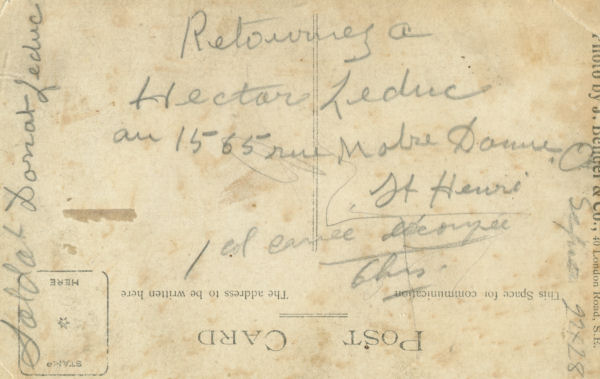 Retournez a
Hector Leduc
au 1565 rue Notre Dame O
St Henri
Soldat Donat Leduc
Photo by J. Bender & Co., 40 London Road, S.E.
This Space for communication
The address to be written here
POST CARD
STAMP
HERE